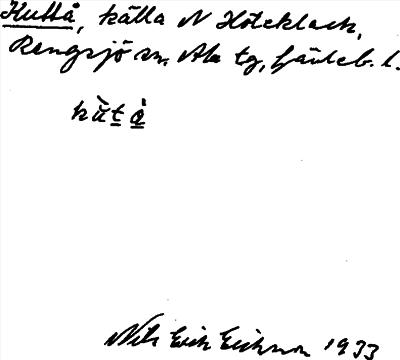 Kuttå, källa N Höleklack,
Rengsjö sn. Ala tg, Gävleb. l.
kùtå̀
Nils Erik Erikson 1933